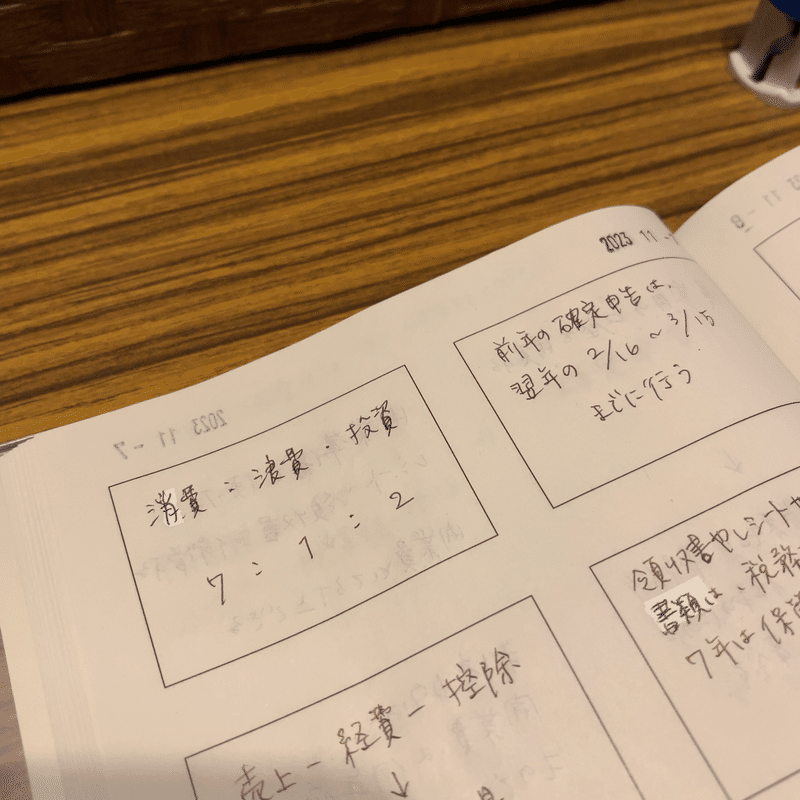 2023 11 -
前年の確定申告は、
翌年の 2/16 ~ 3/15
までに行う.
消費 : 浪費 : 投資
7 : 1 : 2
領収書やレシートや
書類は、税務
7年は保
売上 - 経費 - 控除
↓